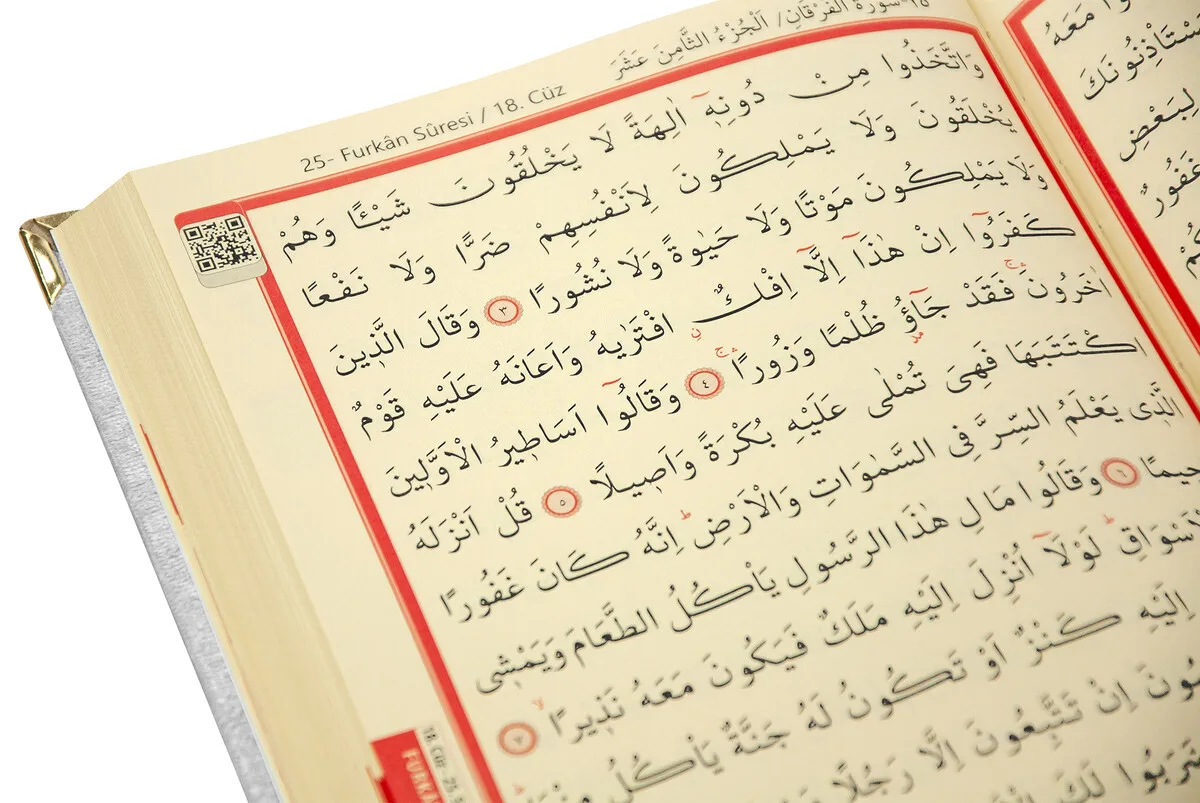 25- Furkân Sûresi / 18. Cüz
سورة الفرقان / اَلْجُزْءُ الثَّامِنَ عَشَرَ
وَاتَّخَذُوا مِنْ دُونِهٖٓ اٰلِهَةً لَا يَخْلُقُونَ شَيْـًٔا وَهُمْ
يُخْلَقُونَ وَلَا يَمْلِكُونَ لِاَنْفُسِهِمْ ضَرًّا وَلَا نَفْعًا
وَلَا يَمْلِكُونَ مَوْتًا وَلَا حَيٰوةً وَلَا نُشُورًا ٣ وَقَالَ الَّذٖينَ
كَفَرُٓوا اِنْ هٰذَٓا اِلَّٓا اِفْكٌ افْتَرٰيهُ وَاَعَانَهُ عَلَيْهِ قَوْمٌ
اٰخَرُونَ فَقَدْ جَٓاؤُ ظُلْمًا وَزُورًا ٤ وَقَالُٓوا اَسَاطٖيرُ الْاَوَّلٖينَ
اكْتَتَبَهَا فَهِىَ تُمْلٰى عَلَيْهِ بُكْرَةً وَاَصٖيلًا ٥ قُلْ اَنْزَلَهُ
الَّذٖى يَعْلَمُ السِّرَّ فِى السَّمٰوَاتِ وَالْاَرْضِ اِنَّهُ كَانَ غَفُورًا
حٖيمًا ٦ وَقَالُوا مَالِ هٰذَا الرَّسُولِ يَاْكُلُ الطَّعَامَ وَيَمْشٖى
اَسْوَاقِ لَوْلَٓا اُنْزِلَ اِلَيْهِ مَلَكٌ فَيَكُونَ مَعَهُ نَذٖيرًا ٧
اِلَيْهِ كَنْزٌ اَوْ تَكُونُ لَهُ جَنَّةٌ يَاْكُلُ
اِنْ تَتَّبِعُونَ اِلَّا رَجُلًا
لَكَ
مَعَهُ
يَسْتَاْذِنُونَكَ
لِبَعْضِ
غَفُورٌ